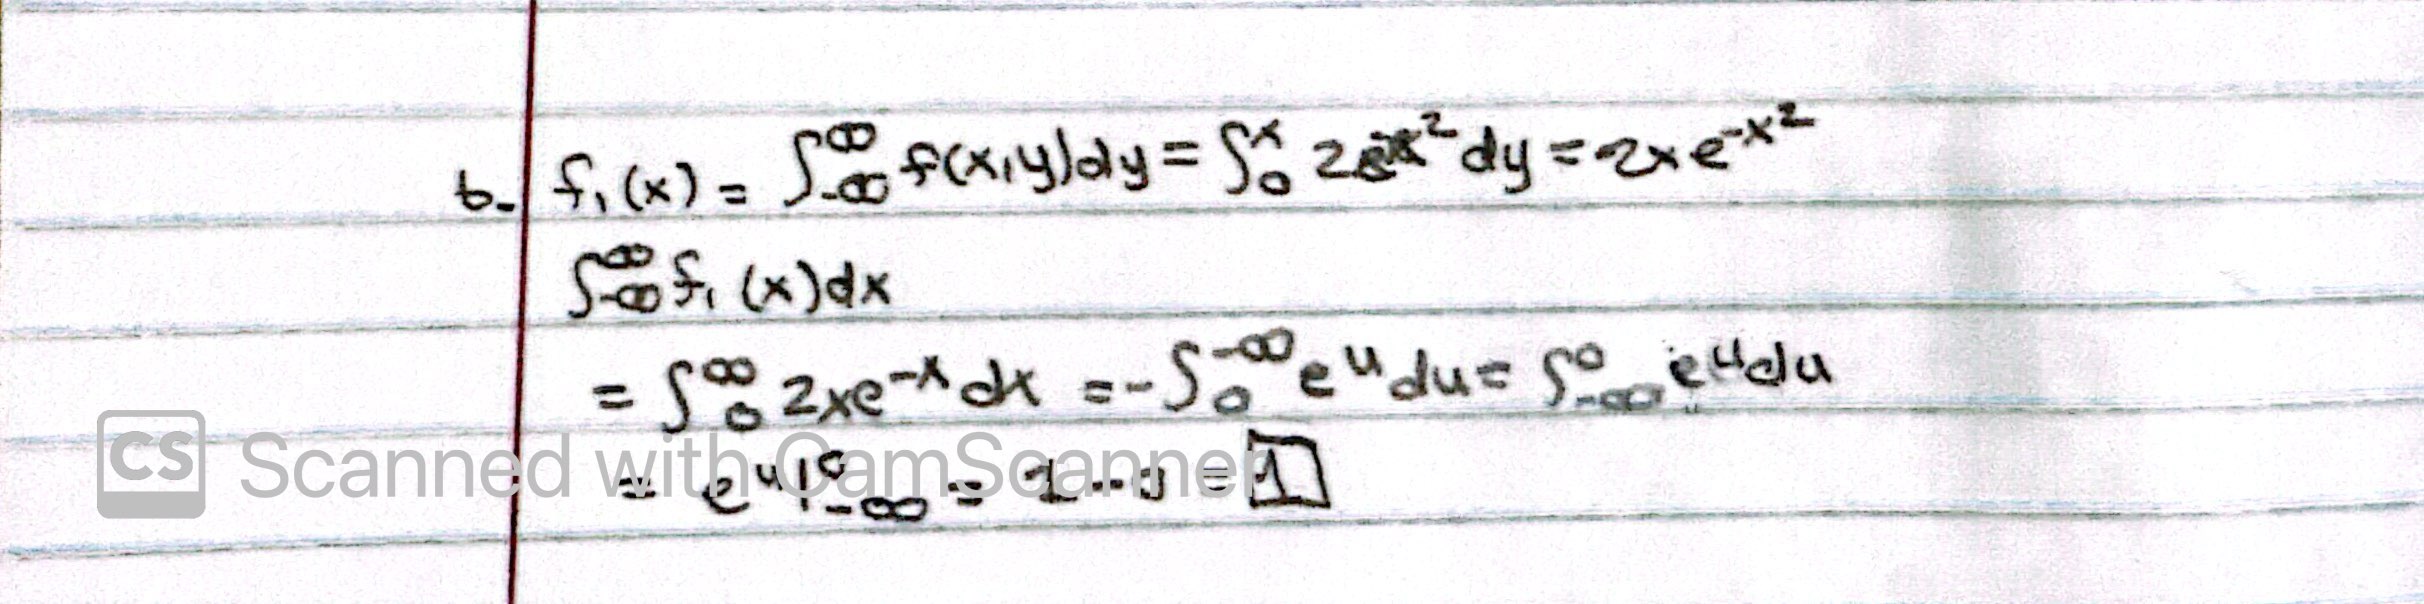 b. f₁(x) = ∫_{-∞}^{∞} f(x,y)dy = ∫_0^x 2e^{-x²} dy = 2xe^{-x²}
∫_{-∞}^{∞} f₁(x)dx
= ∫_0^∞ 2xe^{-x} dx = -∫_0^{-∞} e^u du = ∫_{-∞}^0 e^u du
= e^u|_{-∞}^0 = 1-0 = 1
CS Scanned with CamScanner